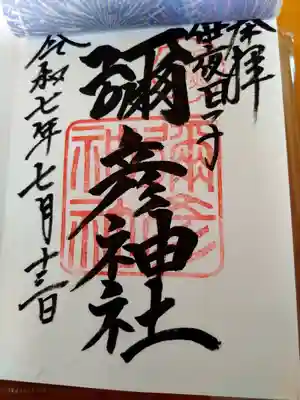 奉拝
伊夜日子
彌彦神社
彌彦神社
令和七年七月十三日